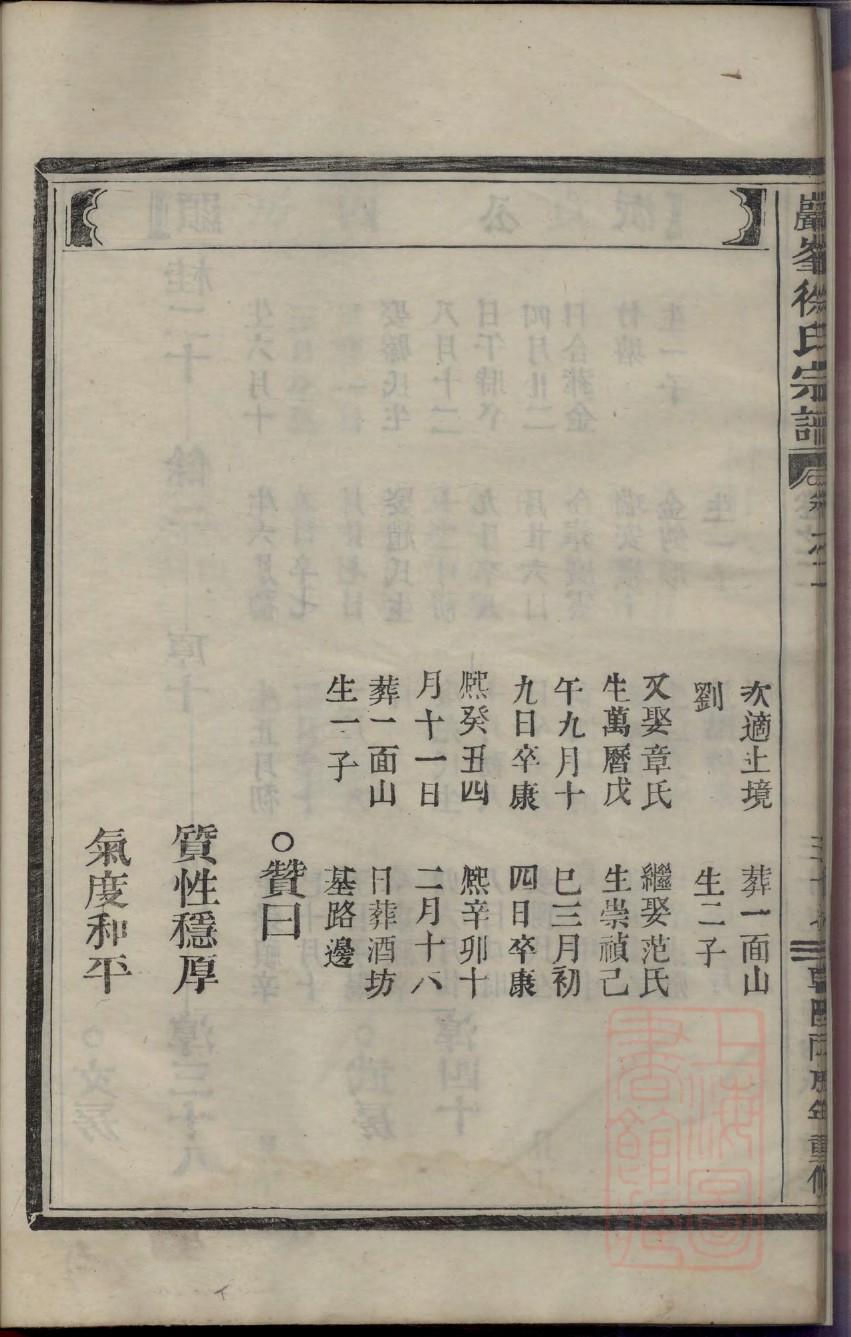 巖峯徐氏宗譜
民國丙戌年重修
次適上境
劉
又娶章氏
生萬曆戊
午九月十
九日卒康
熙癸丑四
月十一日
葬一面山
生一子
葬一面山
生二子
繼娶范氏
生崇禎己
巳三月初
四日卒康
熙辛卯十
二月十八
日葬酒坊
基路邊
○贊曰
質性穩厚
氣度和平
上海圖
書館藏